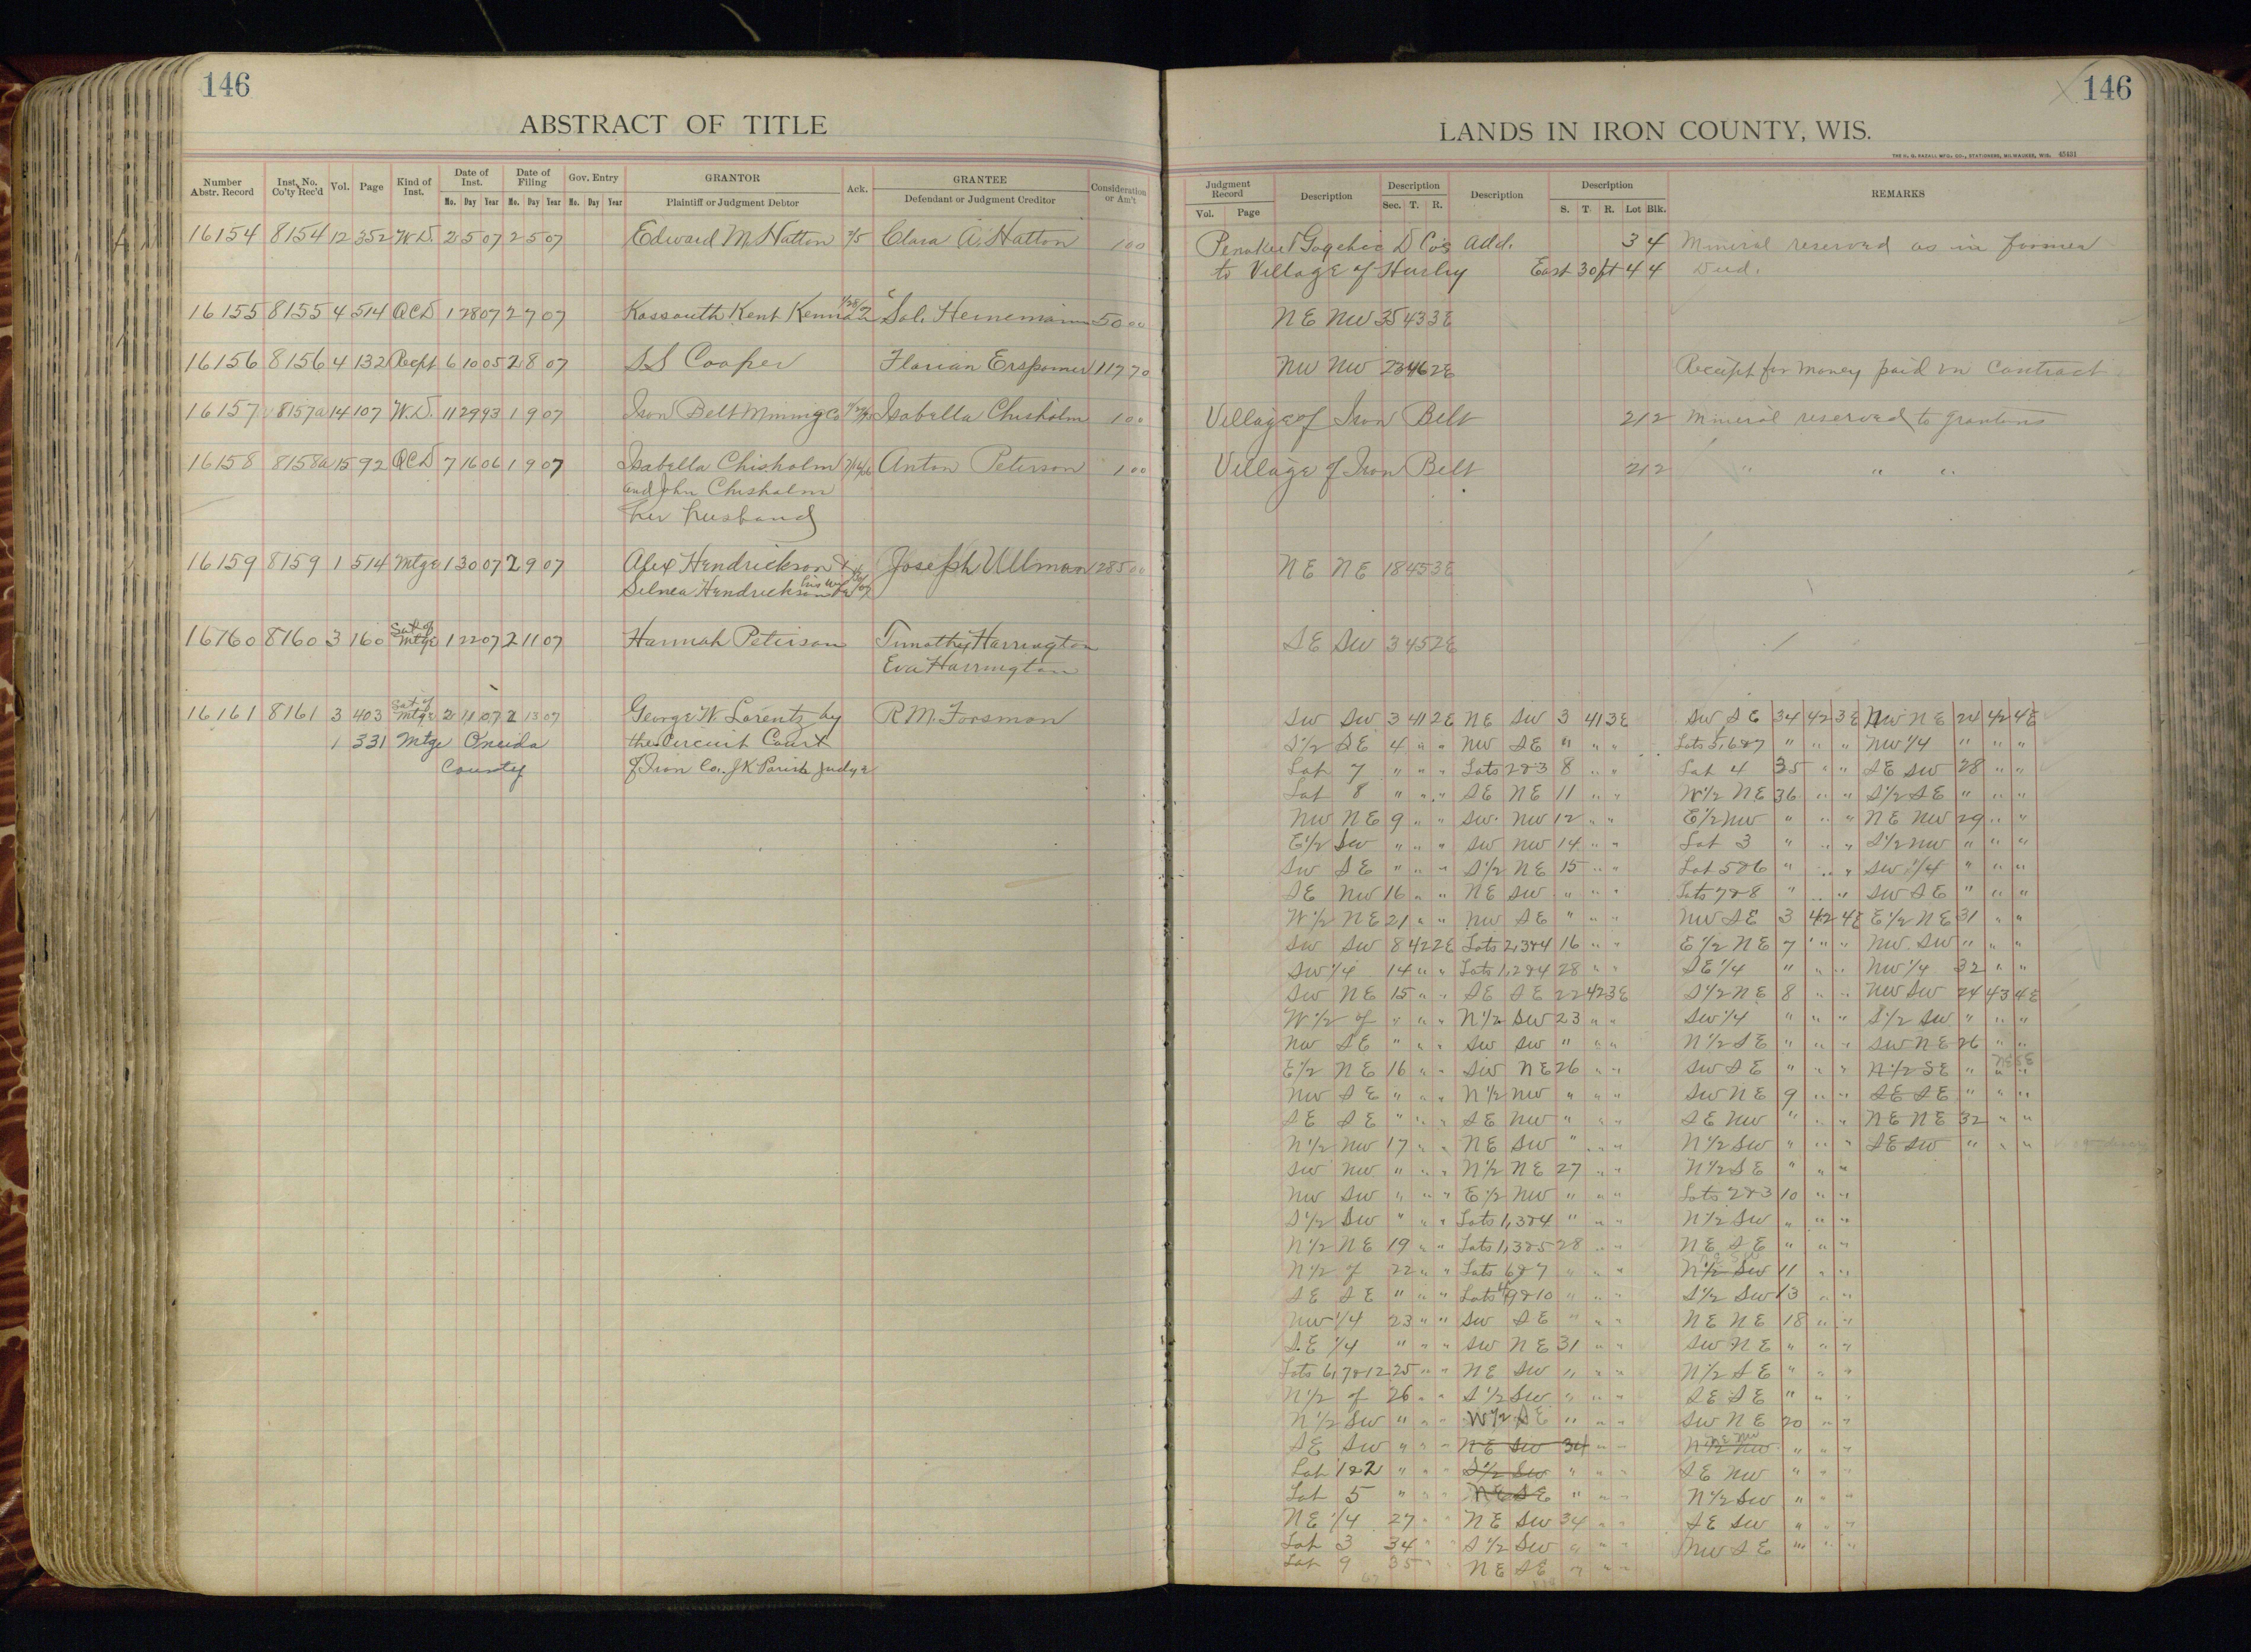 146
ABSTRACT OF TITLE
Number Abstr. Record Inst. No. Co'ty Rec'd Vol. Page Kind of Inst. Date of Inst. Mo. Day Year Date of Filing Mo. Day Year Gov. Entry Mo. Day Year GRANTOR Plaintiff or Judgment Debtor Ack. GRANTEE Defendant or Judgment Creditor Consideration or Am't
16154 8154 12 352 W.D. 2 5 07 2 5 07 Edward M. Hatton 2/5 Clara A. Hatton 1 00
16155 8155 4 514 QCD 1 28 07 2 7 07 Kossouth Kent Kennan Sol. Heinemann 50 00
16156 8156 4 132 Recpt 6 10 05 2 8 07 S S Cooper Florian Erspomer 117 70
16157 8157a 14 107 W.D. 11 29 93 1 9 07 Iron Belt Mining Co Isabella Chisholm 1 00
16158 8158a 15 92 QCD 7 16 06 1 9 07 Isabella Chisholm 7/16/06 Anton Peterson 1 00
and John Chisholm
her husband
16159 8159 1 514 Mtge 1 30 07 2 9 07 Alex Hendrickson & Joseph Ullman 1285 00
Selnea Hendrickson his wife
16160 8160 3 160 Sat of Mtge 1 22 07 2 11 07 Hannah Peterson Timothy Harrington
Eva Harrington
16161 8161 3 403 Sat. of Mtge 2 11 07 2 13 07 George W. Lorentz by R. M. Forsman
1 331 Mtge Oneida the Circuit Court
County of Iron Co. J K Parish Judge
146
LANDS IN IRON COUNTY, WIS.
THE H. G. RAZALL MFG. CO., STATIONERS, MILWAUKEE, WIS. 45431
Judgment Record Vol. Page Description Description Sec. T. R. Description Description S. T. R. Lot Blk. REMARKS
Penokee & Gogebic D Co's Add. 3 4 Mineral reserved as in former
to Village of Hurley East 30 ft 4 4 Deed.
NE NW 35 43 3E
NW NW 23 46 2E Receipt for money paid on Contract
Village of Iron Belt 2 12 Mineral reserved to grantors
Village of Iron Belt 2 12 " " "
NE NE 18 45 3E
SE SW 3 45 2E
SW SW 3 41 2E NE SW 3 41 3E SW SE 34 42 3E NW NE 24 42 4E
S1/2 SE 4 " " NW SE " " " Lots 5, 6 & 7 " " " NW 1/4 " " "
Lot 7 " " " Lots 2 & 3 8 " " Lot 4 35 " " SE SW 28 " "
Lot 8 " " " SE NE 11 " " W1/2 NE 36 " " S1/2 SE " " "
NW NE 9 " " SW NW 12 " " E1/2 NW " " " NE NW 29 " "
E1/2 SW " " " SW NW 14 " " Lot 3 " " " S1/2 NW " " "
SW SE " " " S1/2 NE 15 " " Lot 5 & 6 " " " SW 1/4 " " "
SE NW 16 " " NE SW " " " Lots 7 & 8 " " " SW SE " " "
W1/2 NE 21 " " NW SE " " " NW SE 3 42 4E E1/2 NE 31 " "
SW SW 8 42 2E Lots 2, 3 & 4 16 " " E1/2 NE 7 " " NW SW " " "
SW 1/4 14 " " Lots 1, 2 & 4 28 " " SE 1/4 " " " NW 1/4 32 " "
SW NE 15 " " SE SE 22 42 3E S1/2 NE 8 " " NW SW 24 43 4E
W1/2 of " " " N1/2 SW 23 " " SW 1/4 " " " S1/2 SW " " "
NW SE " " " SW SW " " " N1/2 SE " " " SW NE 26 " "
E1/2 NE 16 " " SW NE 26 " " SW SE " " " N1/2 SE " " " NE SE
NW SE " " " N1/2 NW " " " SW NE 9 " " SE SE " " "
SE SE " " " SE NW " " " SE NW " " " NE NE 32 " "
N1/2 NW 17 " " NE SW " " " N1/2 SW " " " SE SW " " "
SW NW " " " N1/2 NE 27 " " N1/2 SE " " "
NW SW " " " E1/2 NW " " " Lots 2 & 3 10 " "
S1/2 SW " " " Lots 1, 3 & 4 " " " N1/2 SW " " "
N1/2 NE 19 " " Lots 1, 3 & 5 28 " " NE SE " " "
N1/2 of 22 " " Lots 6 & 7 " " " N1/2 SW 11 " "
SE SE " " " Lots 9 & 10 " " " S1/2 SW 13 " "
NW 1/4 23 " " SW SE " " " NE NE 18 " "
SE 1/4 " " " SW NE 31 " " SW NE " " "
Lots 6, 7 & 12 25 " " NE SW " " " N1/2 SE " " "
N1/2 of 26 " " S1/2 SW " " " SE SE " " "
N1/2 SW " " " W1/2 SE " " " SW NE 20 " "
SE SW " " " NE SW 34 " " N1/2 NW " " " NE NW
Lot 1 & 2 " " " S1/2 SW " " " SE NW " " "
Lot 5 " " " NE SE " " " N1/2 SW " " "
NE 1/4 27 " " NE SW 34 " " SE SW " " "
Lot 3 34 " " S1/2 SW " " " NW SE " " "
Lot 9 35 " " NE SE " " "